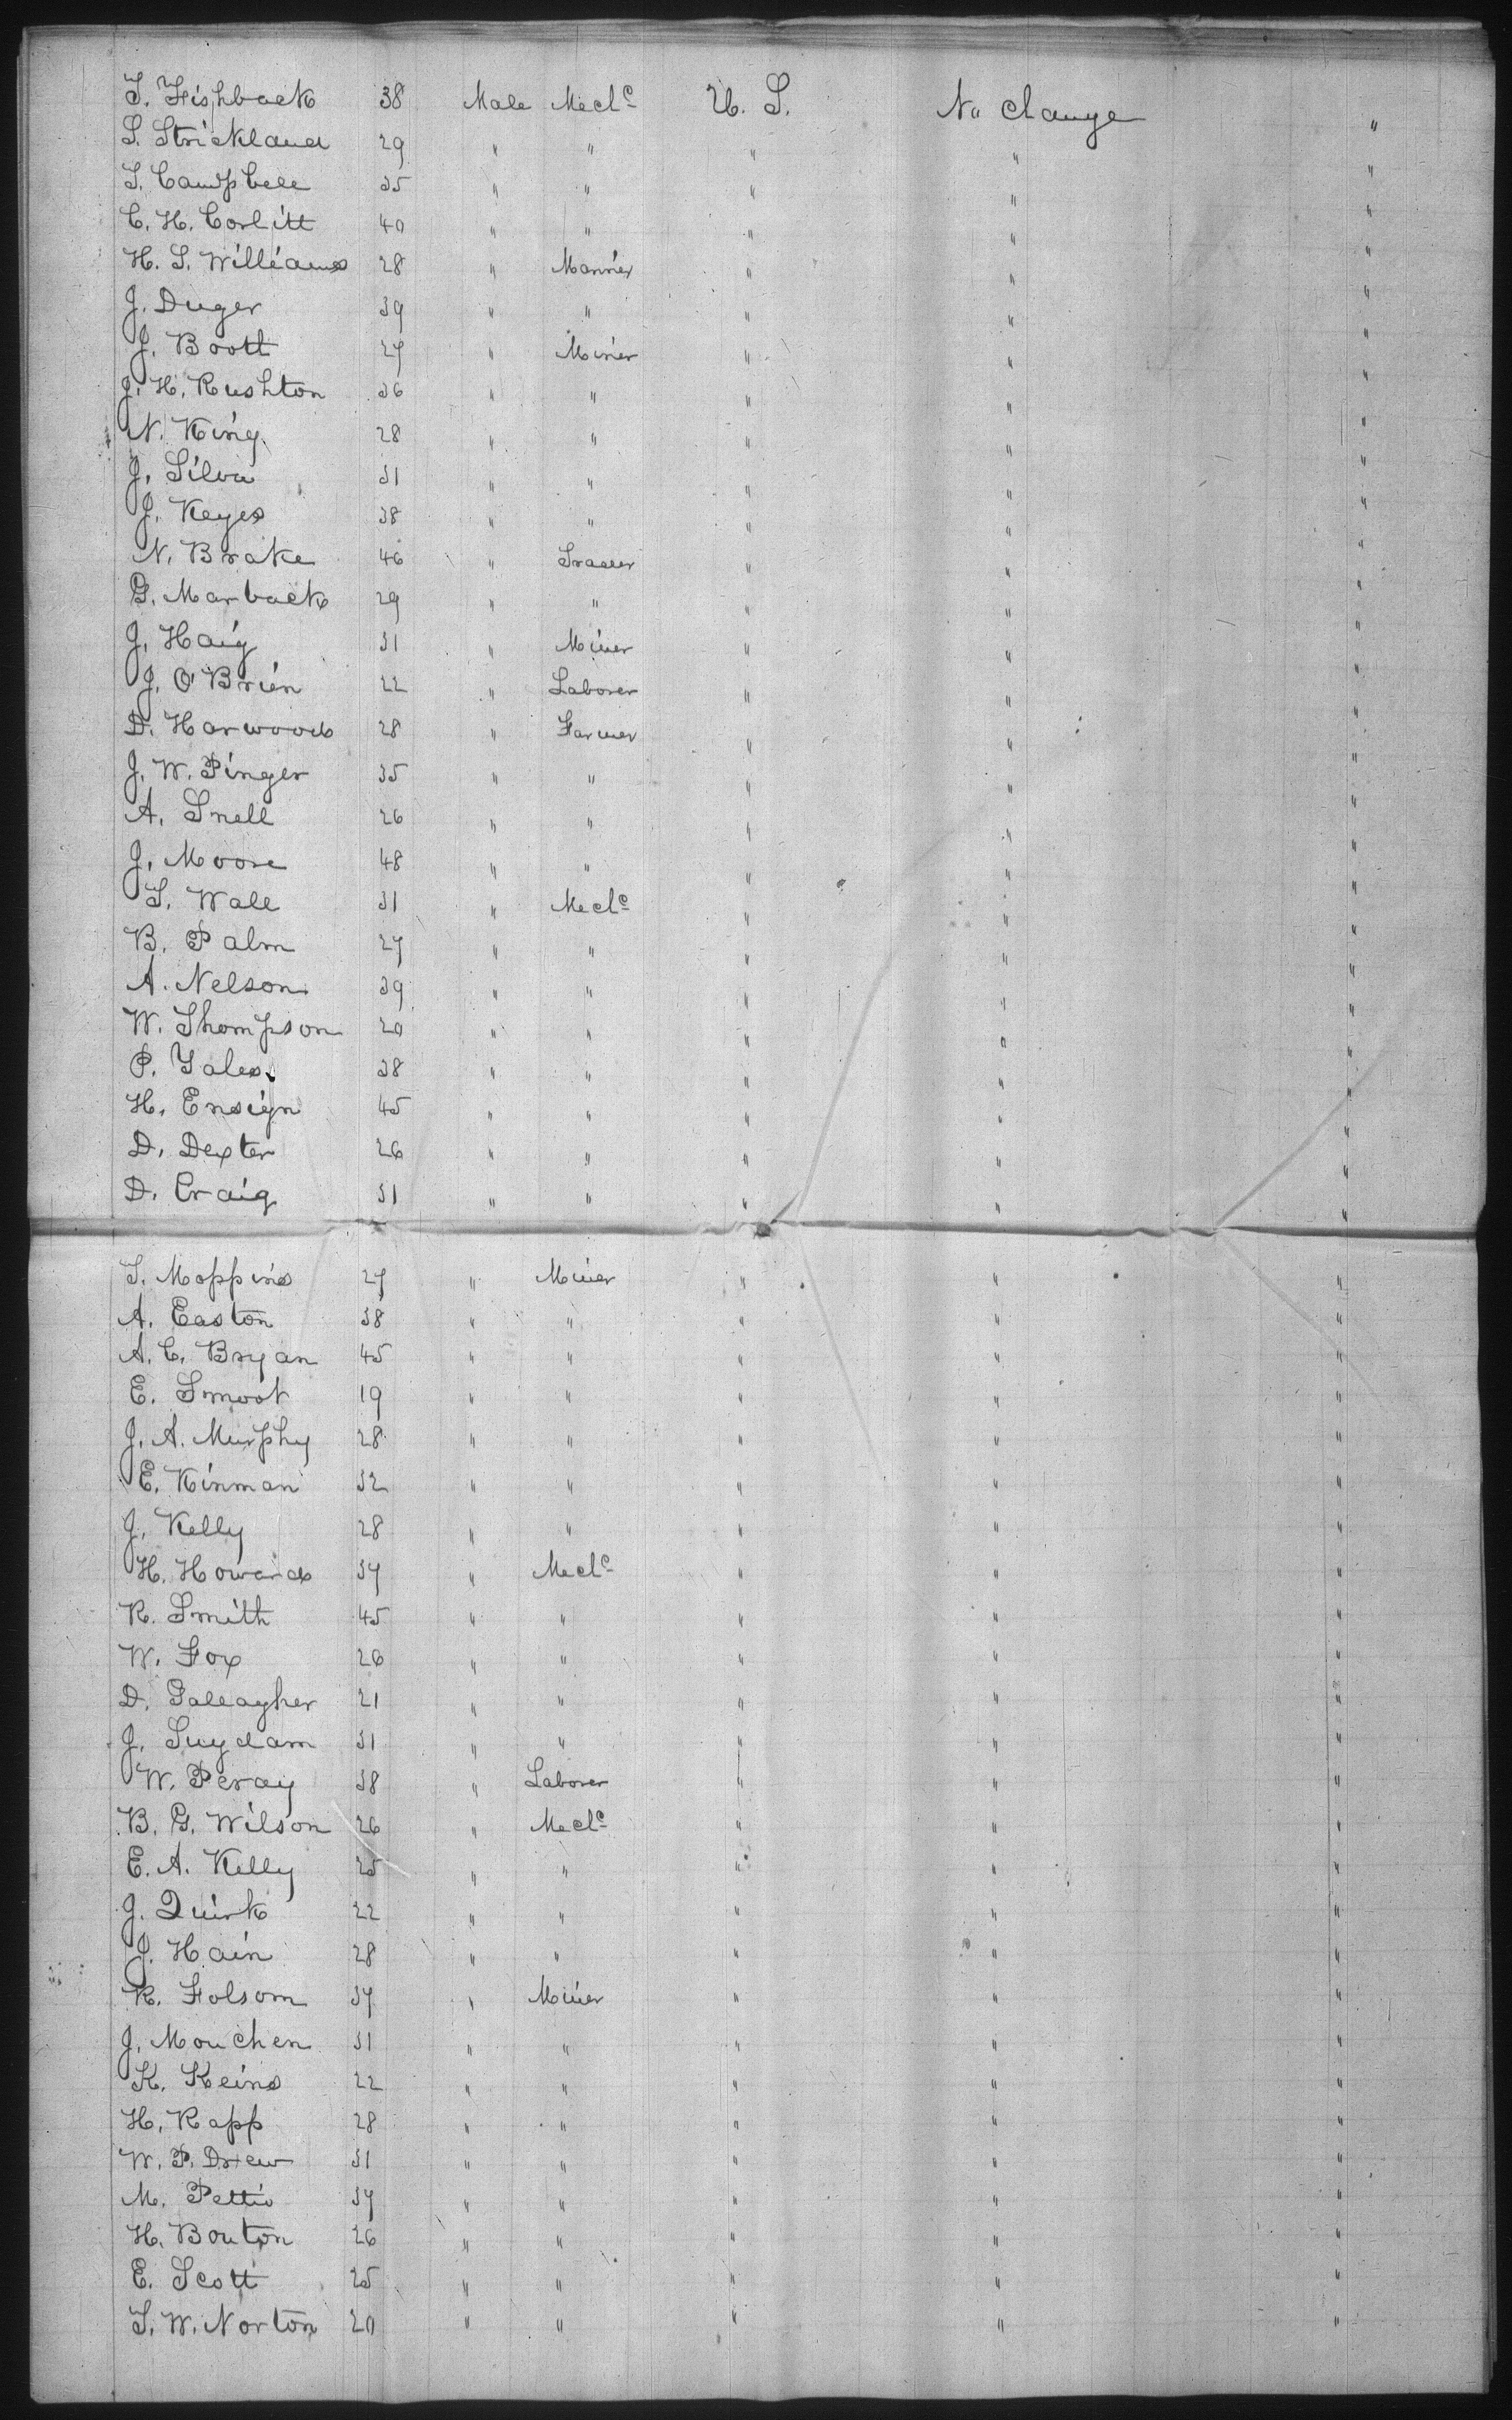 T. Fishback 38 Male Mech U. S. No change "
S. Strickland 29 " " " " "
T. Campbell 35 " " " " "
C. H. Corlitt 40 " " " " "
H. S. Williams 28 " Mariner " " "
J. Duger 39 " " " " "
J. Boott 27 " Miner " " "
J. H. Rushton 36 " " " " "
N. King 28 " " " " "
J. Silva 31 " " " " "
J. Keyes 38 " " " " "
N. Brake 46 " Trader " " "
G. Marback 29 " " " " "
J. Haig 31 " Miner " " "
J. O'Brien 22 " Laborer " " "
D. Harwood 28 " Farmer " " "
J. W. Pinger 35 " " " " "
A. Snell 26 " " " " "
J. Moore 48 " " " " "
T. Wall 31 " Mech " " "
B. Palm 27 " " " " "
A. Nelson 39 " " " " "
W. Thompson 20 " " " " "
P. Yales 38 " " " " "
H. Ensign 45 " " " " "
D. Dexter 26 " " " " "
D. Craig 31 " " " " "
T. Moppins 27 " Miner " " "
A. Easton 38 " " " " "
A. C. Bryan 45 " " " " "
E. Smoot 19 " " " " "
J. A. Murphy 28 " " " " "
E. Kinman 32 " " " " "
J. Kelly 28 " " " " "
H. Howard 37 " Mech " " "
R. Smith 45 " " " " "
W. Fox 26 " " " " "
D. Gallagher 21 " " " " "
J. Suydam 31 " " " " "
W. Peray 38 " Laborer " " "
B. G. Wilson 26 " Mech " " "
E. A. Kelly 25 " " " " "
J. Quirk 22 " " " " "
J. Hain 28 " " " " "
R. Folsom 37 " Miner " " "
J. Mouchen 31 " " " " "
K. Keins 22 " " " " "
H. Rapp 28 " " " " "
W. P. Drew 31 " " " " "
M. Pettis 37 " " " " "
H. Bouton 26 " " " " "
E. Scott 25 " " " " "
T. W. Norton 20 " " " " "